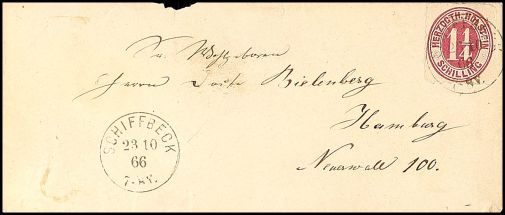 HERZOGTH. HOLSTEIN
1¼
SCHILLING
Herrn Bielenberg
Hamburg
Neuerwall 100.
SCHIFFBECK
23 10
66
7-8V.